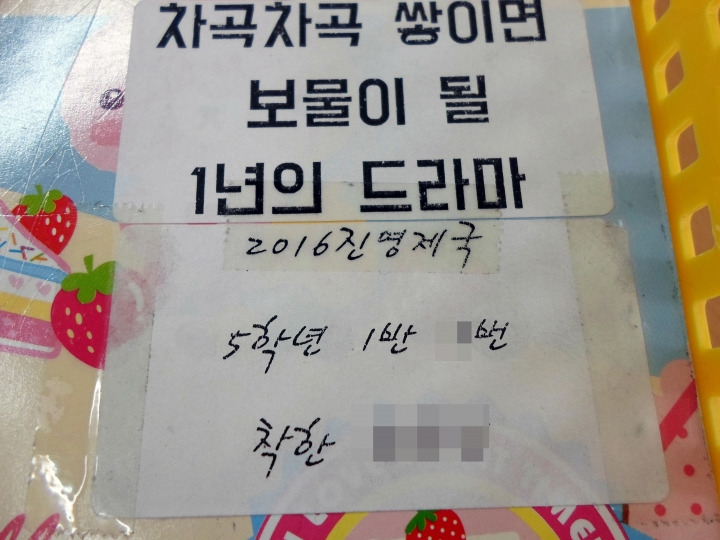 차곡차곡 쌓이면
보물이 될
1년의 드라마
2016진영제국
5학년 1반 번
착한